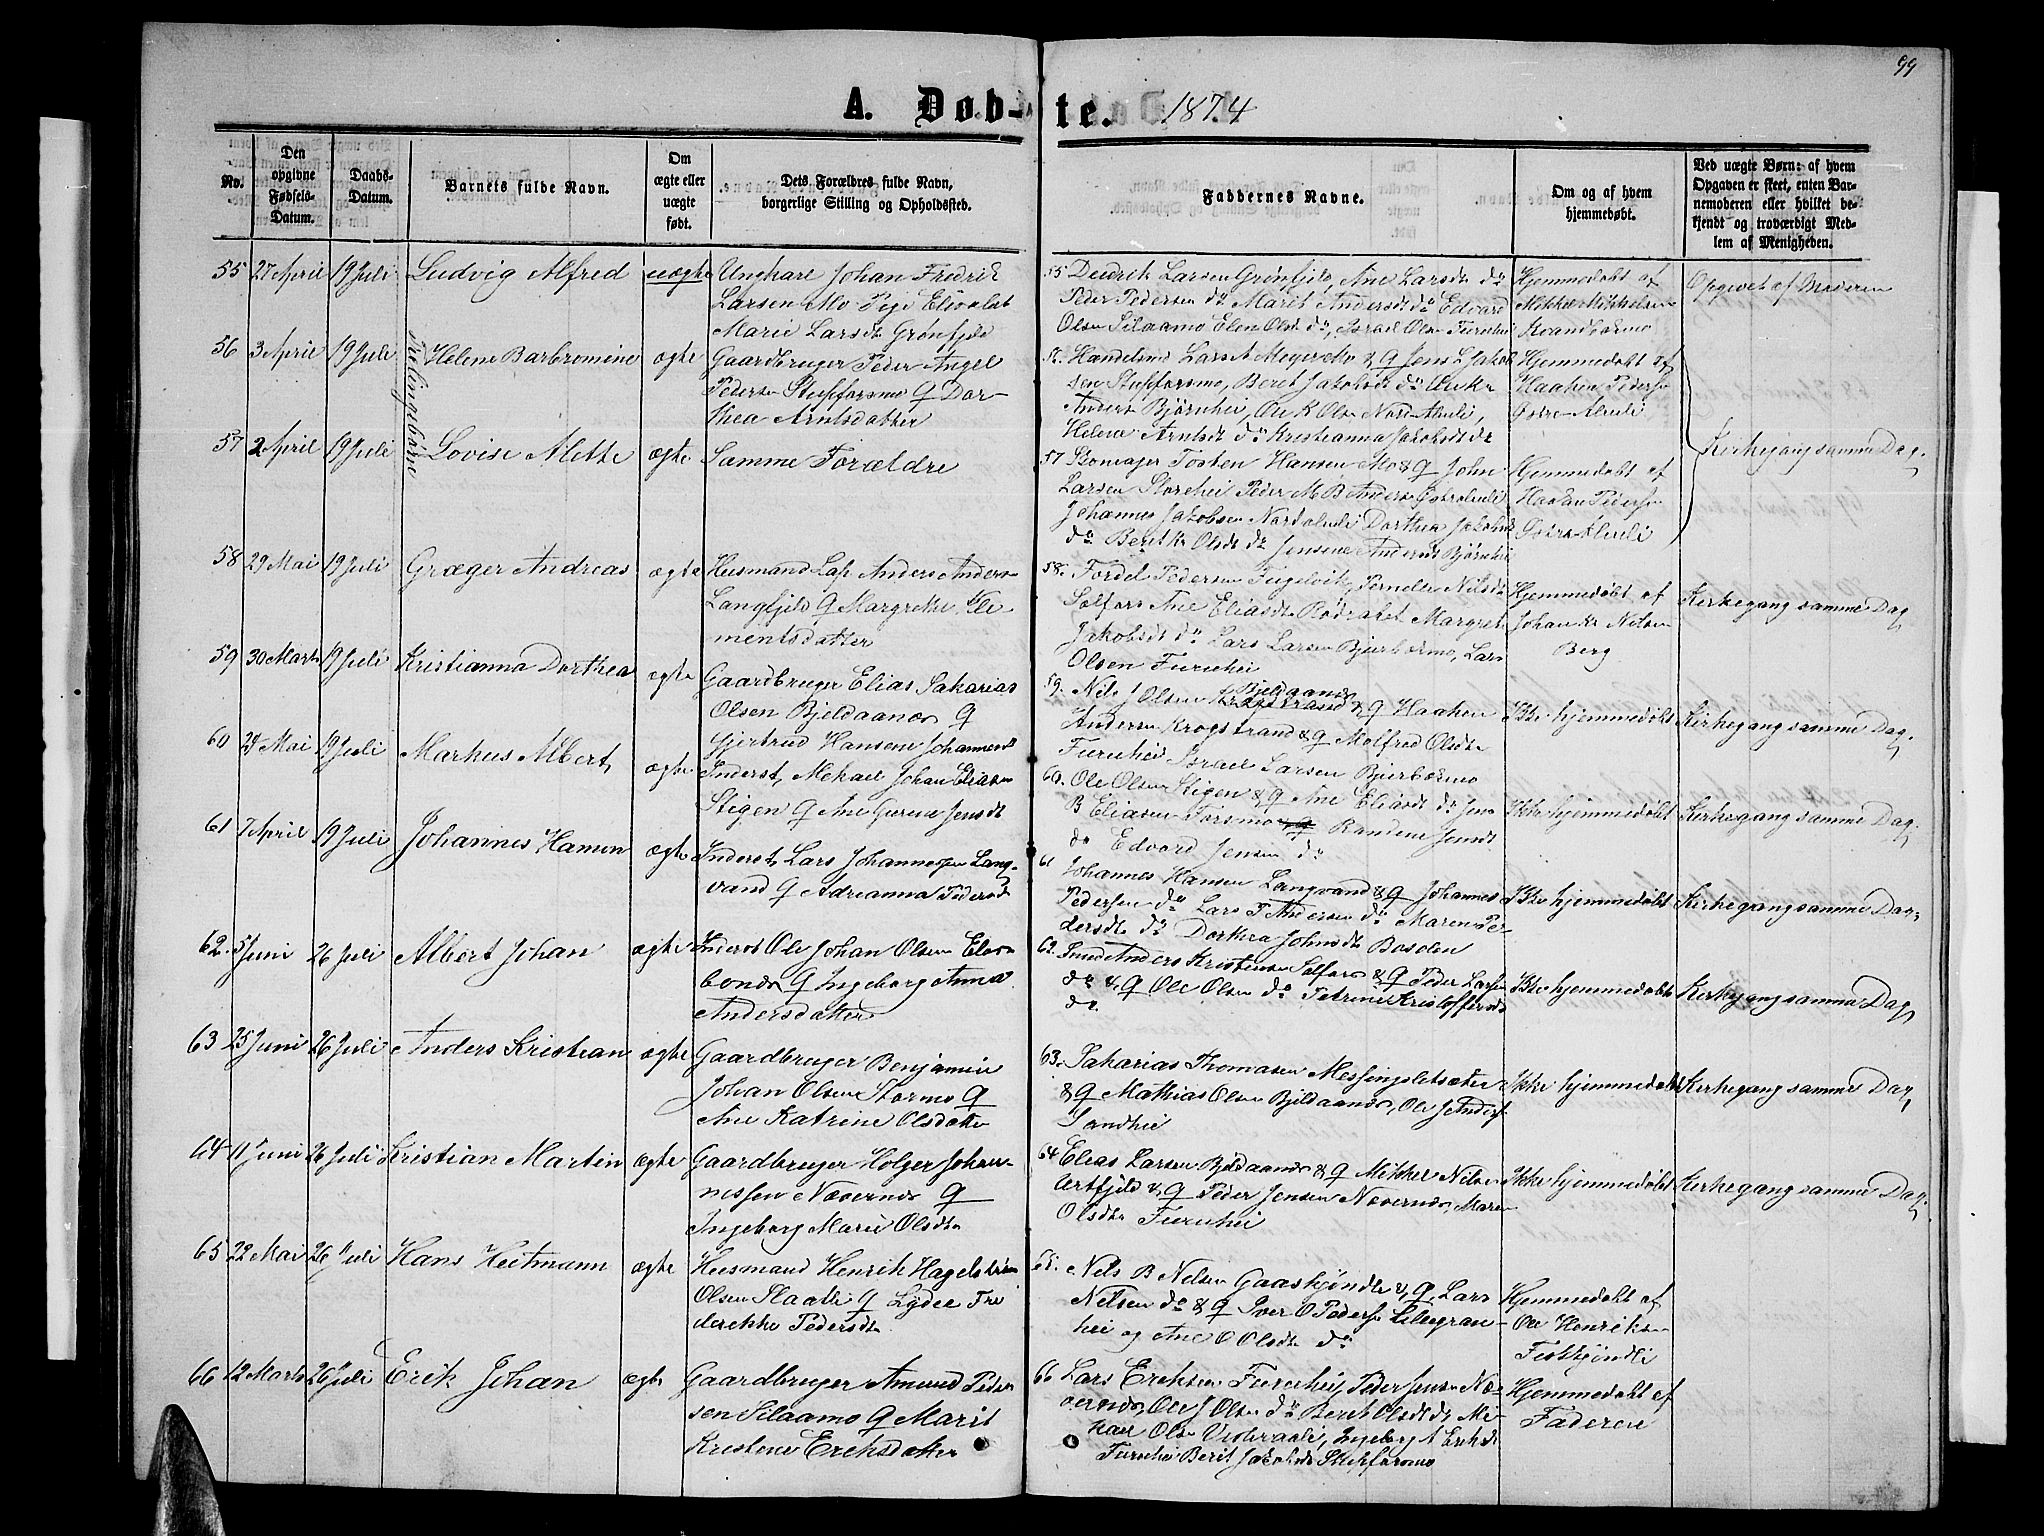 99
A. Døbte. 1874
No.
Den opgivne Fødsels-Datum.
Daabs-Datum.
Barnets fulde Navn.
Om ægte eller uægte født.
Dets Forældres fulde Navn, borgerlige Stilling og Opholdssted.
Faddernes Navne.
Om og af hvem hjemmedøbt.
Ved uægte Børn: af hvem Opgaven er skeet, enten Barnemoderen eller hvilket bekjendt og troværdigt Medlem af Menigheden.
55 27 April 19 Juli Ludvig Alfred uægte Ungkarl Johan Fredrik
Larsen Mo Pige Elisabet
Marie Larsdt Grønfjeld
55 Didrik Larsen Grønfjeld, Ane Larsdt do
Peder Pedersen do Marit Andersdt do Edvard
Olsen Silaamo Elen Olsdt do, Israel Olsen Furuhei
Hjemmedøbt af
Mikkel Mikkelsen
Opgivet af Moderen
Tvillingebørn
56 3 April 19 Juli Helene Barbromine ægte Gaardbruger Peder Angel
Pedersen Stupforsmo & Dor-
thea Arntsdatter
56. Handelsmd Lars A Meyer Mo & Jens L Jakob
sen Stupforsmo, Beret Jakobsdt do
Anders Bjørnhei, Ole K Olsen Nord-Aluli,
Helene Arntsdt do Kristianna Jakobsdt do
Hjemmedøbt af
Haaken Peders
Østre-Aluli
57 2 April 19 Juli Lovise Mette ægte Samme Forældre
57 Tosten Hansen Mo & John
Larsen Storehei Peder M B Anders Østraluli
Johannes Jakobsen Nordaluli Dorthea Jakobsdt
do Berit K Olsdt do Jensine Andersdt Bjørnhei
Hjemmedøbt af
Haakan Peders
Østre-Aluli
Kirkegang samme Dag.
58 29 Mai 19 Juli Græger Andreas ægte Husmand Lap Anders Anders
Langfjeld & Margrethe Kle
mentsdatter
58. Fordel Pedersen Fugelvik, Pernelle Nilsdt
Solfors Ane Eliasdt Rødvatnet Margret
Jakobsdt do Lars Larsen Bjurbækmo, Lars
Olsen Furuhei
Hjemmedøbt af
Johan Kr Nilsen
Berg
Kirkegang samme Dag
59 30 Marts 19 Juli Kristianna Dorthea ægte Gaardbruger Elias Sakarias
Olsen Bjeldaanes &
Gjertrud Hansine Johannesdt
59. Nils J Olsen Bjeldaanes & Haaken
Andersen Krogstrand & Molfred Olsdt
Furuhei Israel Larsen Bjurbækmo
Ikke hjemmedøbt
Kirkegang samme Dag.
60 24 Mai 19 Juli Markus Albert ægte Inderst, Mikael Johan Eliasen
Stigen & Ane Gurine Jensdt
60. Ole Olsen Stigen & Ane Eliasdt do Jens
B Eliasen Forsmo Randine Jensdt
do Edvard Jensen do
Ikke hjemmedøbt
Kirkegang samme Dag.
61 7 April 19 Juli Johannes Hamon ægte Inderst Lars Johannessen Lang-
vand & Adrianna Pedersdt
61 Johannes Hansen Langvand & Johannes
Pedersen do Lars T Andersen do Maren Pe-
dersdt do Dorthea Johnsdt Bosolen
Ikke hjemmedøbt
Kirkegang samme Dag,
62. 5 Juni 26 Juli Albert Johan ægte Inderst Ole Johan Olsen
& Ingeborg Anna
Andersdatter
62. Anders Kristensen Solfors & Peder Larsen
do & Ole Olsen do Petrine Kristoffersdt
do.
Ikke hjemmedøbt
Kirkegang samme Dag
63 25 Juni 26 Juli Anders Kristian ægte Gaardbruger Benjamin
Johan Olsen Stormo &
Ane Katrine Olsdatter
63. Sakarias Thomasen Messingsletsæter
& Mathias Olsen Bjeldaanes, Ole J Anders
Sandhei
Ikke hjemmedøbt
Kirkegang samme Dag
64 11 Juni 26 Juli Kristian Martin ægte Gaardbruger Holger Johan-
nessen Nævernes &
Ingeborg Marie Olsdt
64 Elias Larsen Bjeldaanes & Mikkel Nilsen
Urtfjeld & Peder Jensen Nævernes, Maren
Olsdt Furuhei
Ikke hjemmedøbt
Kirkegang samme Dag
65 22 Mai 26 Juli Hans Heitmann ægte Husmand Henrik Hagelstein
Olsen Slaatli & Lydee Fre
derekke Pedersdt
65. Nils B Nilsen Gaaskjønli & Lars
Nilsen do & Iver O Peders Lillegran-
hei og Ane O Olsdt do
Hjemmedøbt af
Ole Henriks
Fiskkjønli
66 12 Marts 26 Juli Erik Johan ægte Gaardbruger Amund Peder
sen Silaamo & Marit
Kristine Eriksdatter
66 Lars Eriksen Furuhei, Peder Jensen Næ-
vernes, Ole J Olsen do Beret Olsdt do Mi-
kael Olsen, Ingeborg A Eriksdt
Furuhei Berit Jakobsdt Stupforsmo
Hjemmedøbt af
Faderen